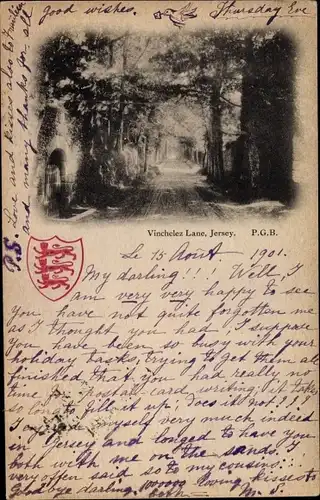 good wishes.
Thursday Eve
Vinchelez Lane, Jersey. P.G.B.
Le 15 Août 1901.
My darling!!! Well, I
am very very happy to see
you have not quite forgotten me
as I thought you had. I suppose
you have been so busy with your
holiday tasks, trying to get them all
finished that you had really no
time for postall-card writing; it takes
so long to fill it up; does it not!!!!
I myself very much indeed
in Jersey and longed to have you
both with me on the sands. I
very often said so to my cousins.
Goodbye darling, loving kisses to
both
P.S. Love and kisses also to
and many thanks for all